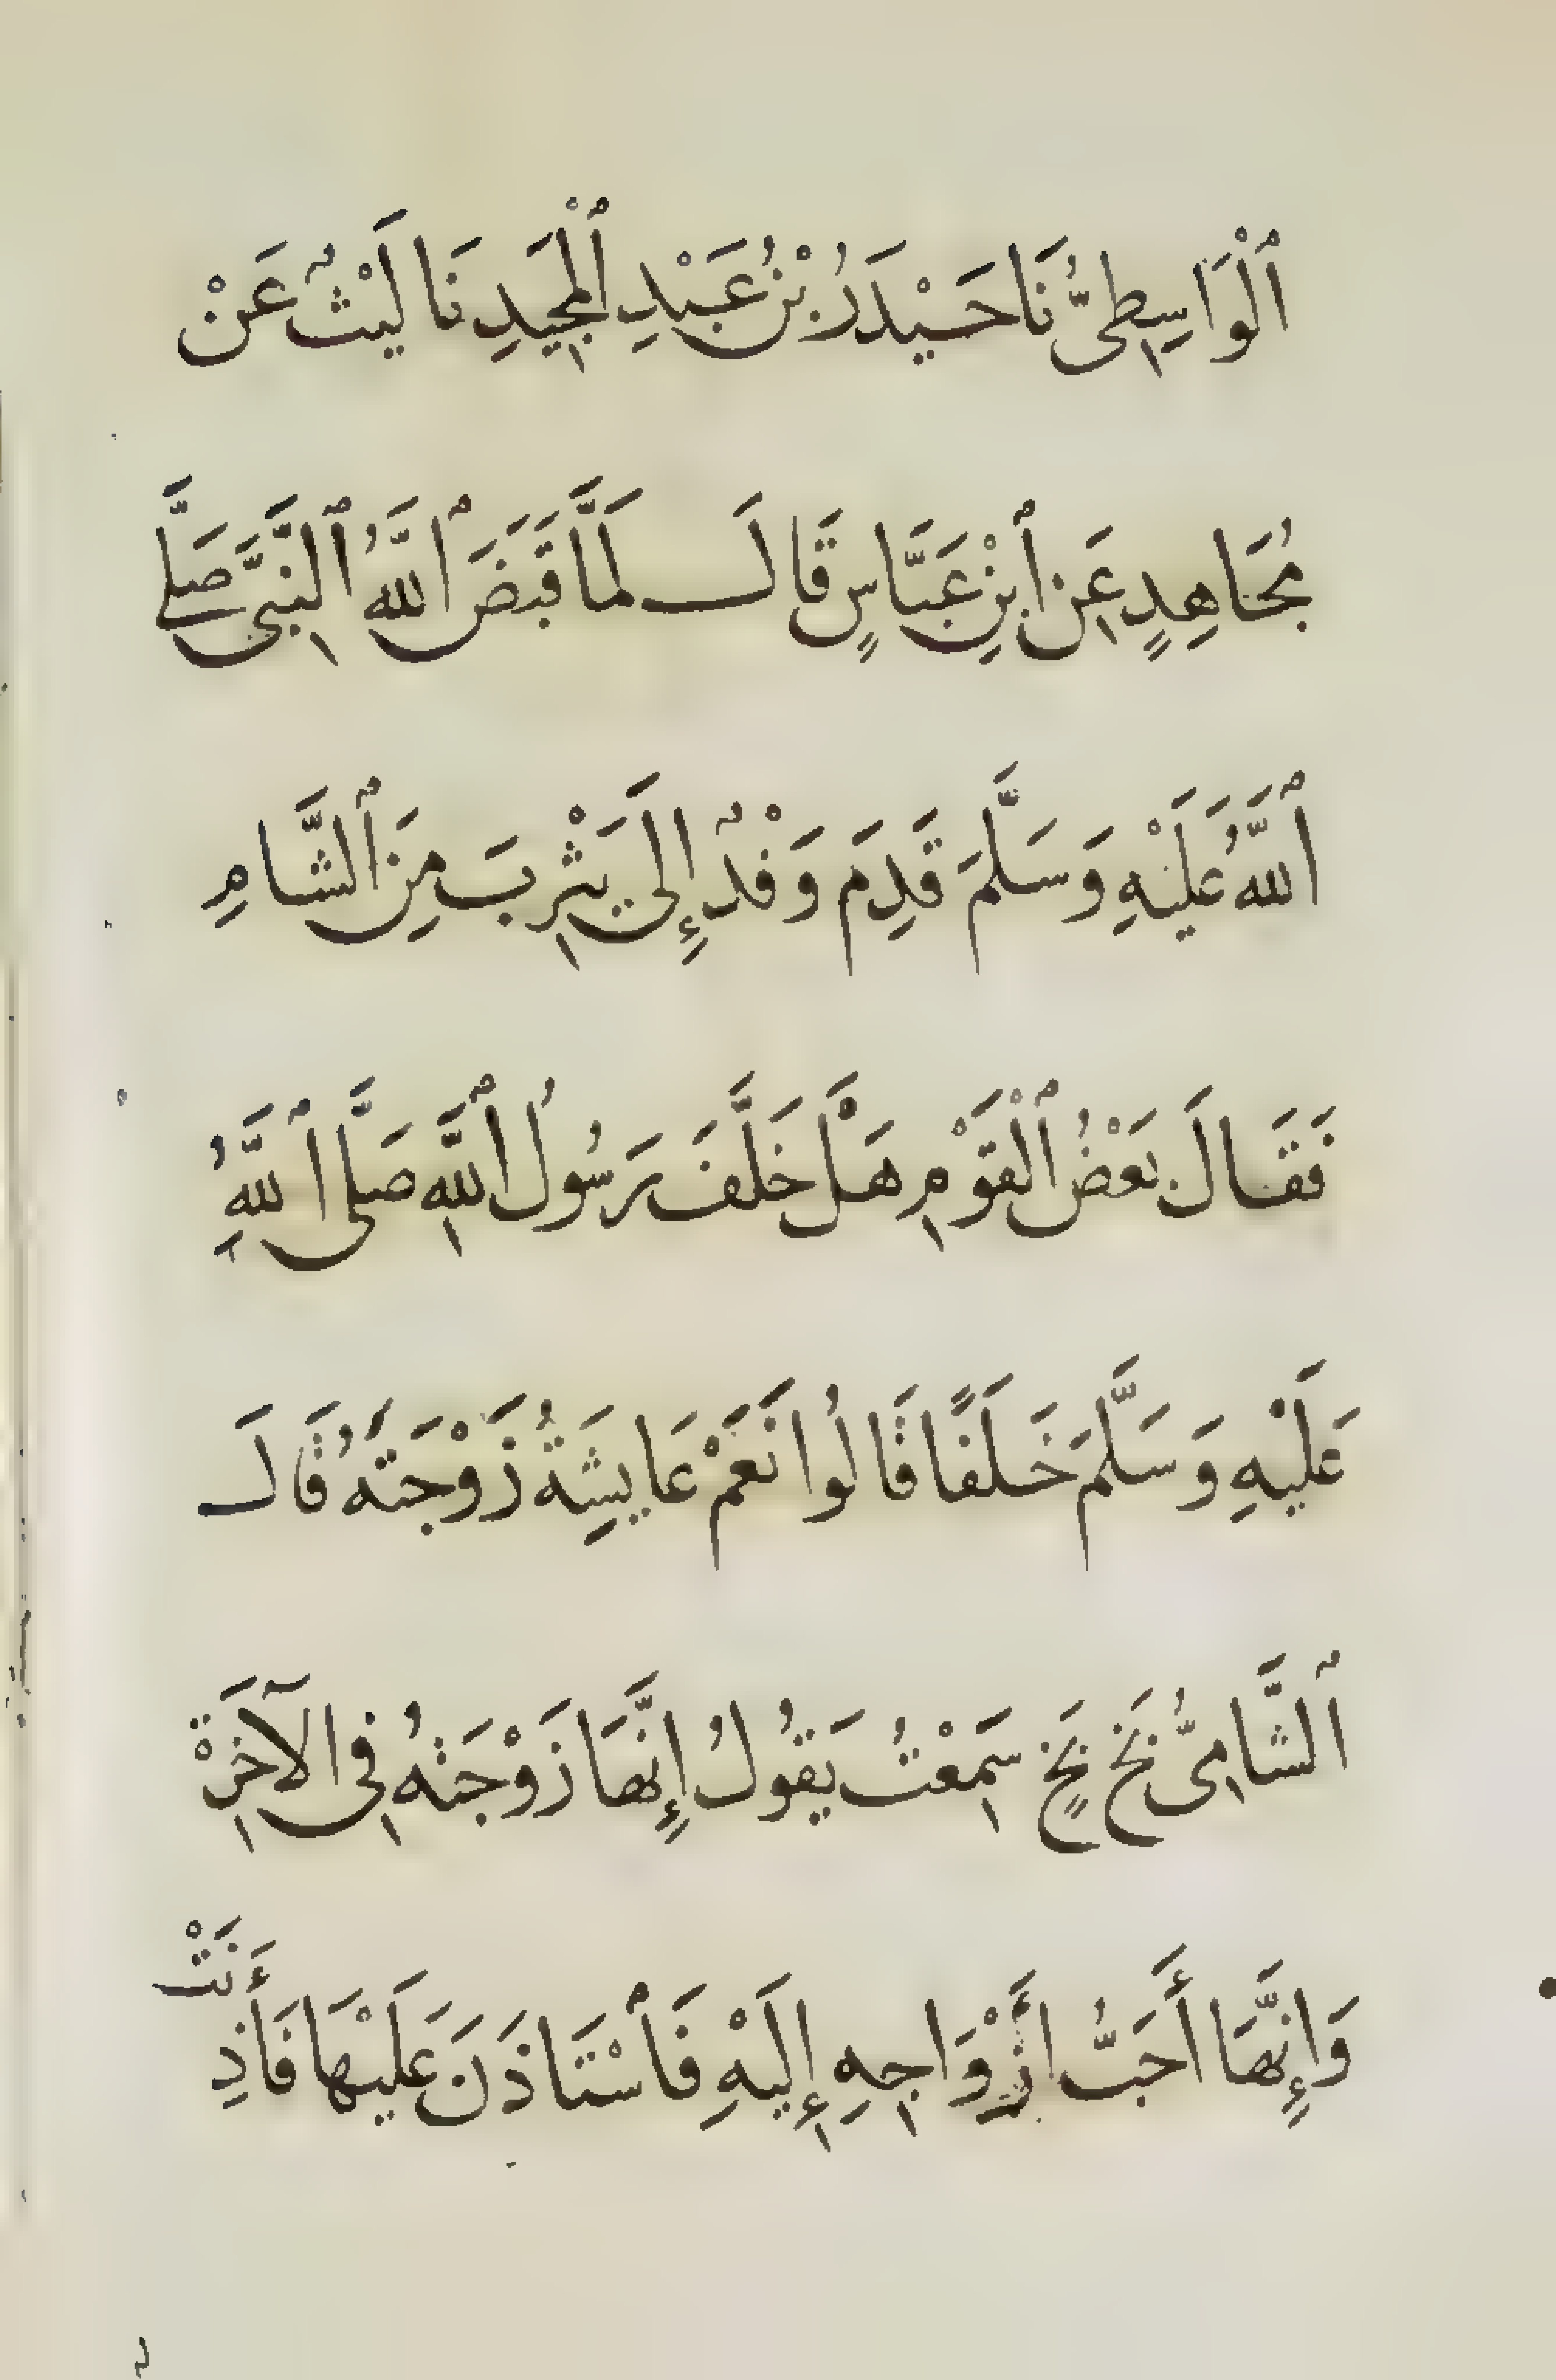 ٱلْوَاسِطِىُّ نَا حَيْدَرُ بْنُ عَبْدِ ٱلْمَجِيدِ نَا لَيْثٌ عَنْ
مُجَاهِدٍ عَنِ ٱبْنِ عَبَّاسٍ قَالَ لَمَّا قَبَضَ ٱللَّهُ ٱلنَّبِىَّ صَلَّى
ٱللَّهُ عَلَيْهِ وَسَلَّمَ قَدِمَ وَفْدٌ إِلَى يَثْرِبَ مِنَ ٱلشَّامِ
فَقَالَ بَعْضُ ٱلْقَوْمِ هَلْ خَلَّفَ رَسُولُ ٱللَّهِ صَلَّى ٱللَّهُ
عَلَيْهِ وَسَلَّمَ خَلَفًا قَالُوا نَعَمْ عَايِشَةُ زَوْجَتَهُ قَالَ
ٱلشَّامِىُّ بَخٍ بَخٍ سَمِعْتُ يَقُولُ إِنَّهَا زَوْجَتُهُ فِى الآخِرَةِ
وَإِنَّهَا أَحَبُّ أَزْوَاجِهِ إِلَيْهِ فَٱسْتَاذَنَ عَلَيْهَا فَأَذِنَتْ